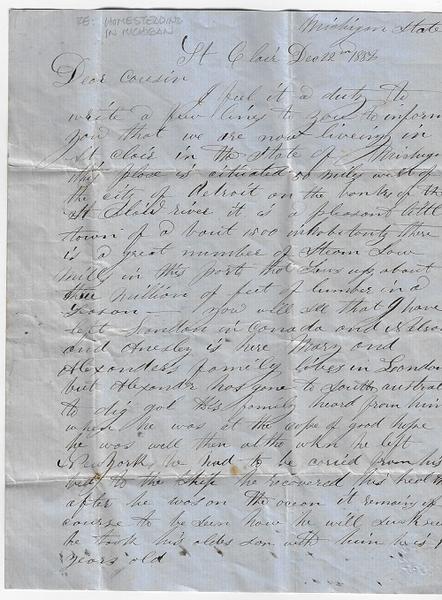 RE: HOMESTEADING
IN MICHIGAN
Michigan State
St Clair Dec 12th
Dear Cousin
I feel it a duty to
write a few lines to you to inform
you that we are now liveing in
St clair in the State of
this place is situated miles west of
the city of detroit on the banks of the
St Clair river it is a pleasant little
town of a bout 1500 inhabitants there
is a great number of Steam Saw
mills in this part that Saws up about
three million of feet of lumber in a
Season — you will see that I have
left London in Canada and
and is here Mary and
Alexanders family lives in London
but Alexander has gone to South austral
to dig gol his family heard from him
when he was at the cape of good hope
he was well then altho when he left
N. York he had to be caried from his
bed to the Ship he recovered his heal
after he was on the ocean it remains of
course to be seen how he will
he took his oldes son with him he is
years old